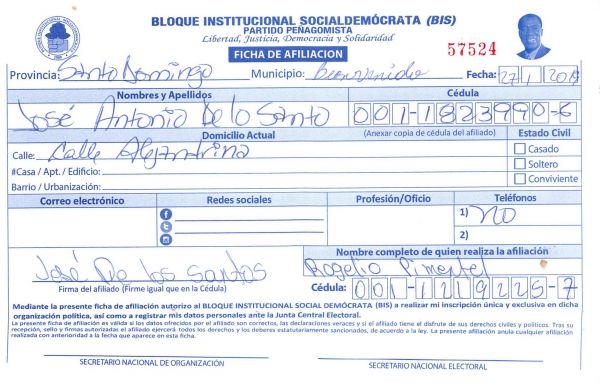 BLOQUE INSTITUCIONAL SOCIALDEMÓCRATA (BIS)
PARTIDO PEÑAGOMISTA
Libertad, Justicia, Democracia y Solidaridad
FICHA DE AFILIACION
57524
Provincia: Santo Domingo Municipio: Bienvenido Fecha: 27/1/2019
Nombres y Apellidos Cédula
José Antonio De lo Santo 001-1823990-6
Domicilio Actual (Anexar copia de cédula del afiliado) Estado Civil
Calle: Calle Alejandrina Casado
#Casa / Apt. / Edificio: Soltero
Barrio / Urbanización: Conviviente
Correo electrónico Redes sociales Profesión/Oficio Teléfonos
1) NO
2)
Nombre completo de quien realiza la afiliación
José De los santos Rogelio Pimentel
Firma del afiliado (Firme igual que en la Cédula) Cédula: 001-1219225-7
Mediante la presente ficha de afiliación autorizo al BLOQUE INSTITUCIONAL SOCIAL DEMÓCRATA (BIS) a realizar mi inscripción única y exclusiva en dicha
organización política, así como a registrar mis datos personales ante la Junta Central Electoral.
La presente ficha de afiliación es válida si los datos ofrecidos por el afiliado son correctos, las declaraciones veraces y si el afiliado tiene el disfrute de sus derechos civiles y políticos. Tras su
recepción, sello y firmas autorizadas el afiliado ejercerá todos los derechos y los deberes estatutariamente sancionados, de acuerdo a la ley. La presente afiliación anula cualquier afiliación
realizada con anterioridad a la fecha que aparece en esta ficha.
SECRETARIO NACIONAL DE ORGANIZACIÓN SECRETARIO NACIONAL ELECTORAL